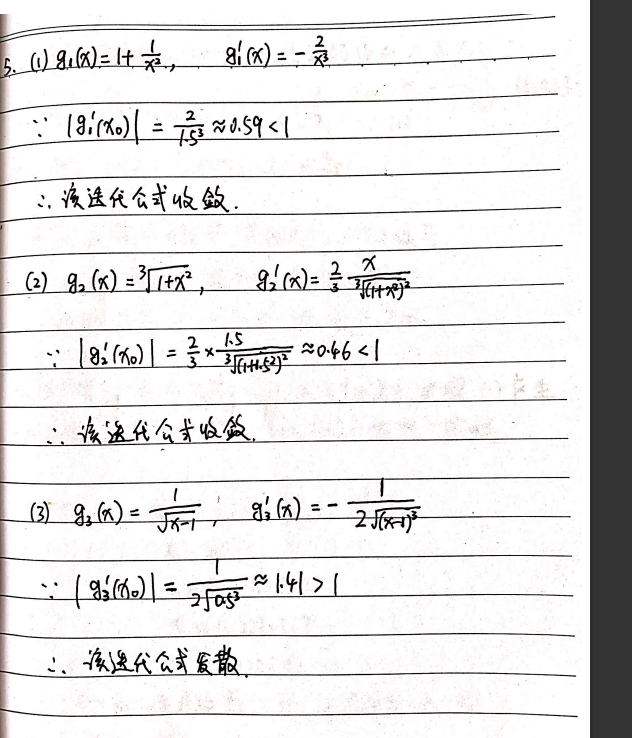 5. (1) g₁(x)=1+\frac{1}{x²}, g₁'(x)=-\frac{2}{x³}
∵ |g₁'(x₀)| = \frac{2}{1.5³} ≈0.59<1
∴ 该迭代公式收敛.
(2) g₂(x)=\sqrt[3]{1+x²}, g₂'(x)=\frac{2}{3} \frac{x}{\sqrt[3]{(1+x²)²}}
∵ |g₂'(x₀)| = \frac{2}{3}×\frac{1.5}{\sqrt[3]{(1+1.5²)²}} ≈0.46<1
∴ 该迭代公式收敛.
(3) g₃(x)=\frac{1}{\sqrt{x-1}}, g₃'(x)=-\frac{1}{2\sqrt{(x-1)³}}
∵ |g₃'(x₀)|=\frac{1}{2\sqrt{0.5³}}≈1.41>1
∴ 该迭代公式发散.